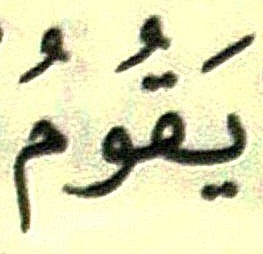 يَقُومُ